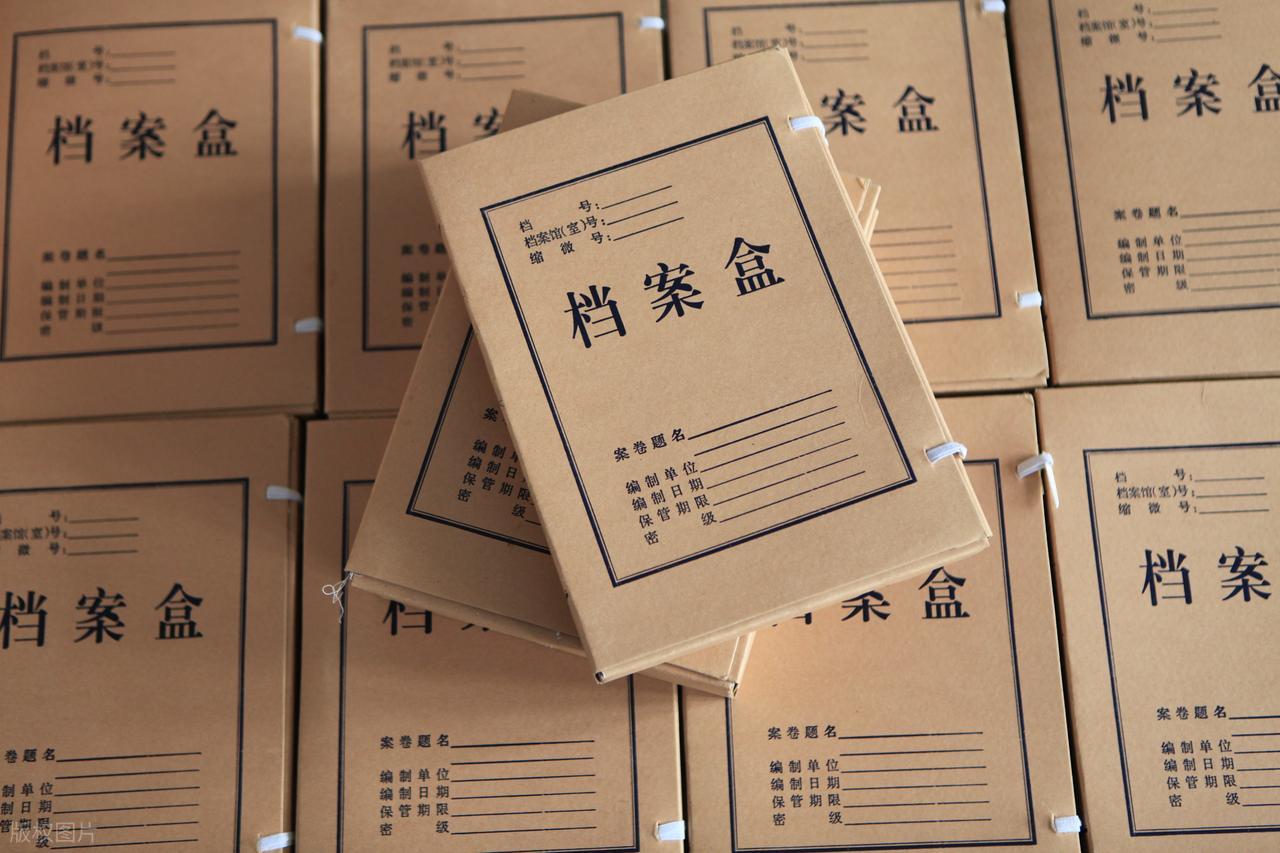 档 号:
档案馆(室)号:
缩 微 号:
档 案 盒
档 号:
档案馆(室)号:
缩 微 号:
档 案
档 号:
档案馆(室)号:
缩 微 号:
案 盒
档 号:
档案馆(室)号:
缩 微 号:
档 案 盒
案 卷 题 名
编 制 单 位
编 制 日 期
保 管 期 限
密 级
案 卷 题 名
编 制 单 位
编 制 日 期
保 管 期 限
密 级
档 号:
档案馆(室)号:
缩 微 号:
档 案 盒
案 卷 题 名
编 制 单 位
编 制 日 期
保 管 期 限
密 级
案
编 制
编 制 日
保 管 期 限
密 级
号:
(室)号:
微 号:
档 案 盒
卷 题 名
制 单 位
制 日 期
管 期 限
级
档
案 卷 题 名
编 制 单 位
编 制 日 期
保 管 期 限
密 级
案 盒
案 卷 题 名
编 制 单 位
编 制 日 期
保 管 期 限
密 级
档 号:
档案馆(室)号:
缩 微 号:
档 案
案 卷 题 名
编 制 单 位
编 制 日 期
保 管 期 限
密 级
版权图片